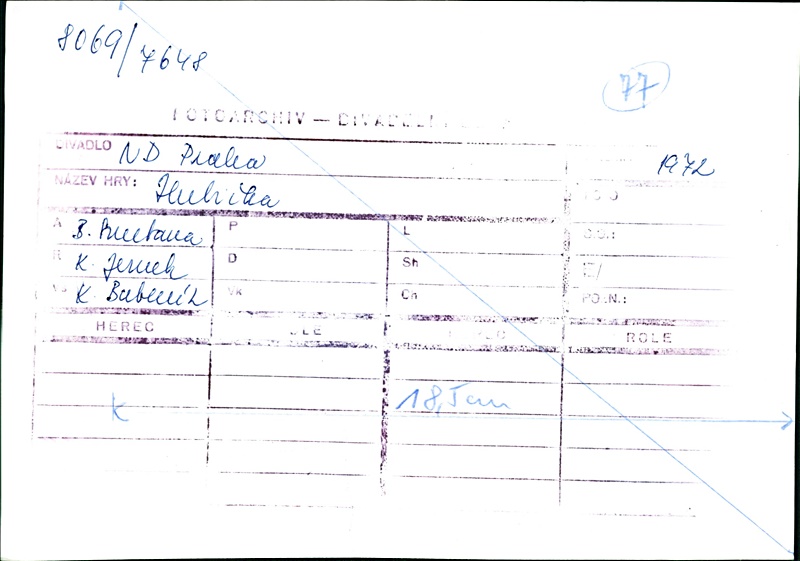 8069/7648
77
FOTOARCHIV – DIVADELNÍ
DIVADLO ND Praha 1972
NÁZEV HRY: Hubička
A B. Smetana P L Č.O.:
R K. Jernek D Sh
K. Bubeník Vk Ch PO.N.:
HEREC ROLE
K 18,5 cm